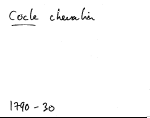 Cocle chevalin
1790-30